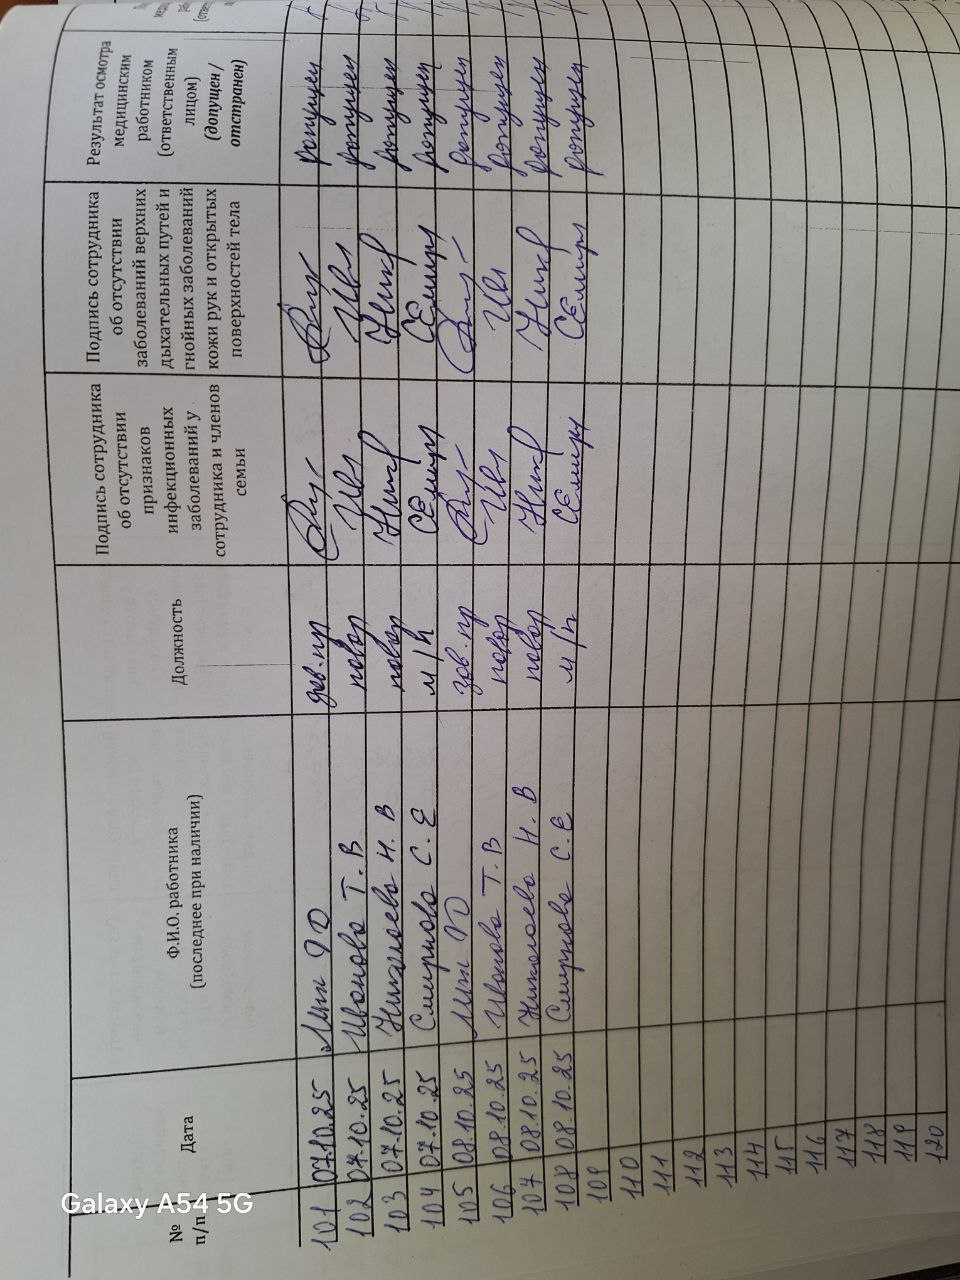 № п/п
Дата
Ф.И.О. работника
(последнее при наличии)
Должность
Подпись сотрудника
об отсутствии
признаков
инфекционных
заболеваний у
сотрудника и членов
семьи
Подпись сотрудника
об отсутствии
заболеваний верхних
дыхательных путей и
гнойных заболеваний
кожи рук и открытых
поверхностей тела
Результат осмотра
медицинским
работником
(ответственным
лицом)
(допущен /
отстранен)
101 07.10.25 зав.пр допущен
102 07.10.25 Иванова Т.В повар Ив допущен
103 07.10.25 Николаева Н.В повар Ник допущен
104 07.10.25 Смирнова С.Е м/п допущен
105 08.10.25 зав.пр допущен
106 08.10.25 Иванова Т.В повар Ив допущен
107 08.10.25 Николаева Н.В повар Ник допущен
108 08.10.25 Смирнова С.Е м/п допущен
109
110
111
112
113
114
115
116
117
118
119
120
Galaxy A54 5G